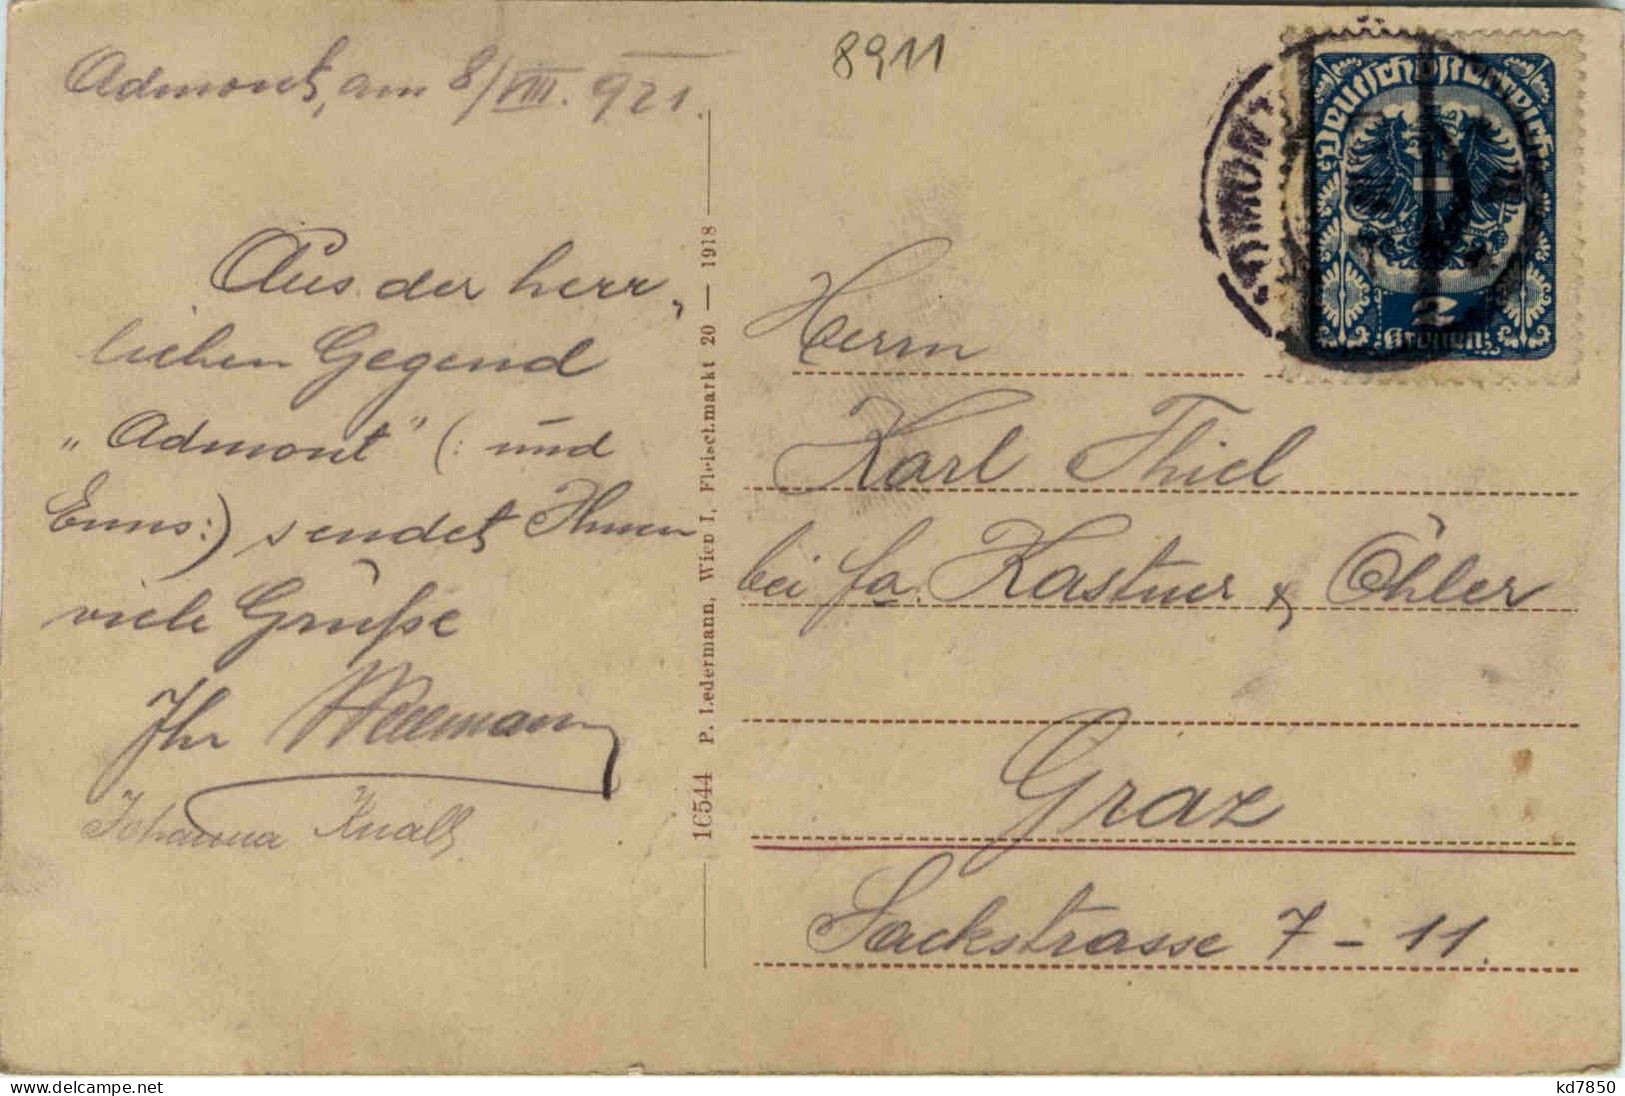 Admont, am 8/VIII. 921.
8911
Aus der herr„
lichen Gegend
„Admont" (: und
Enns:) sendet Ihnen
viele Grüße
Ihr
Johanna Knall
16544 P. Ledermann, Wien I, Fleischmarkt 20 — 1918
ADMONT
Deutschösterreich
2
Kronen
Herrn
Karl Thiel
bei Fa. Kastner & Öhler
Graz
Sackstrasse 7 - 11.
kd7850